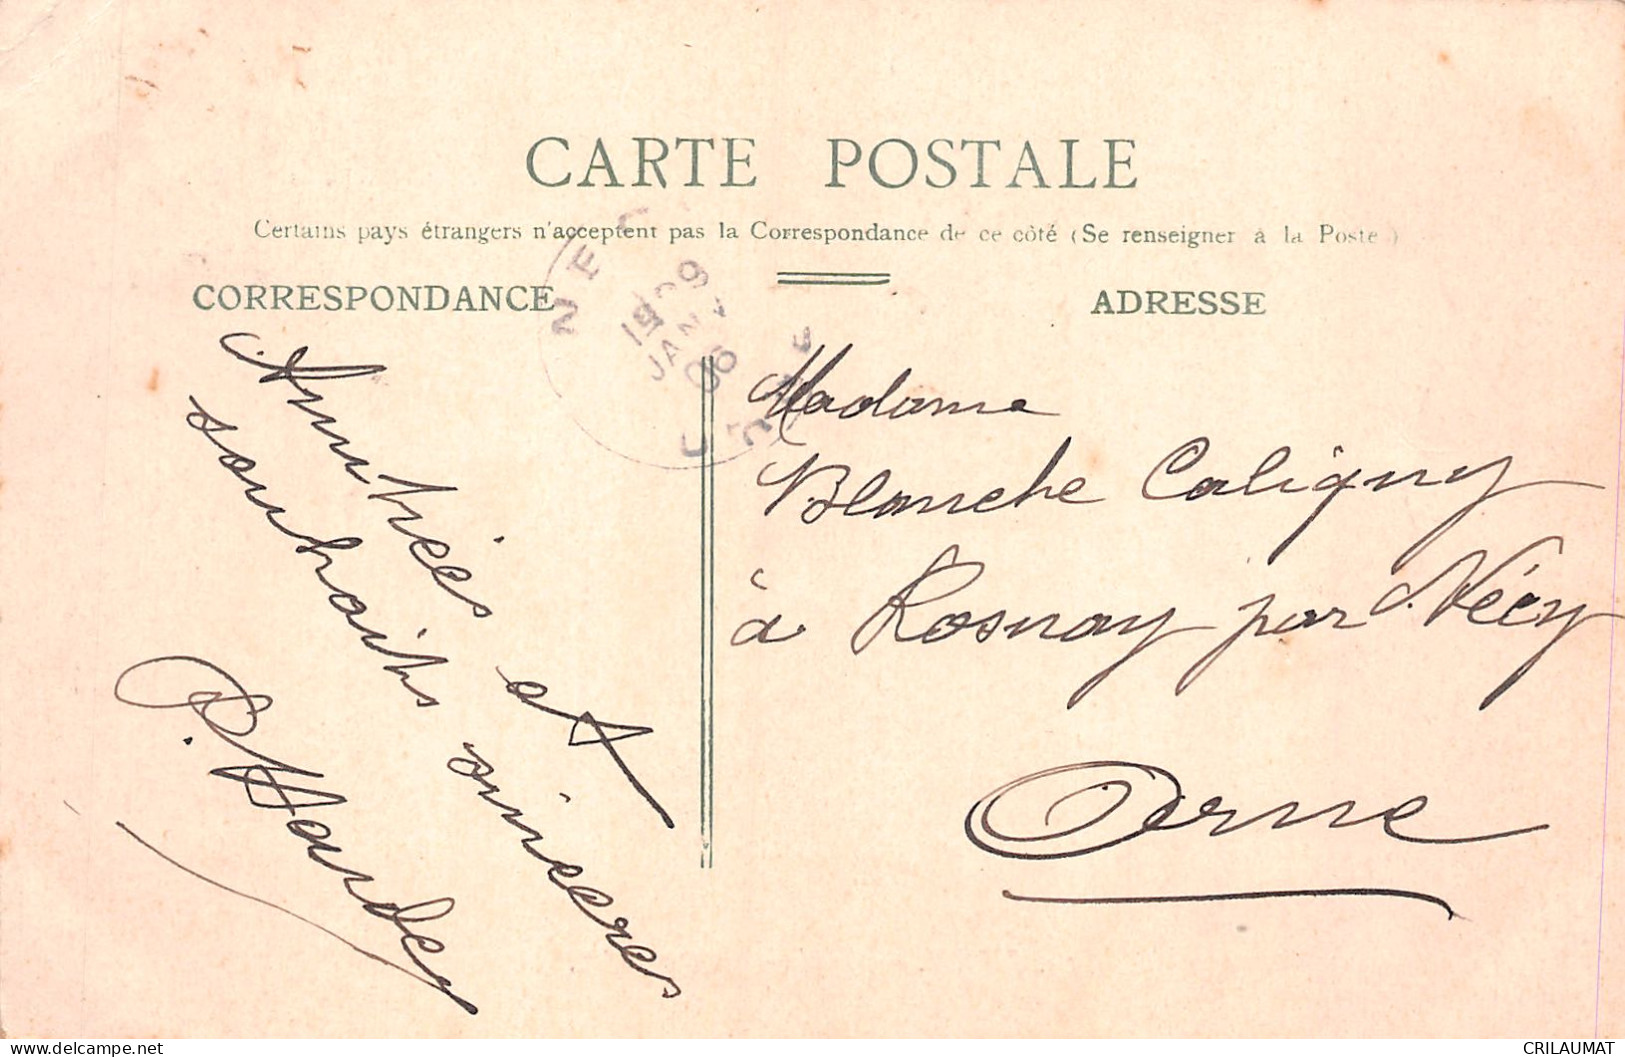 CARTE POSTALE
Certains pays étrangers n'acceptent pas la Correspondance de ce côté (Se renseigner à la Poste)
CORRESPONDANCE
ADRESSE
Amitiés et
souhaits sincères
Madame
Blanche Caligny
à Rosnay par Nécy
Orne
JANV
06
CRILAUMAT